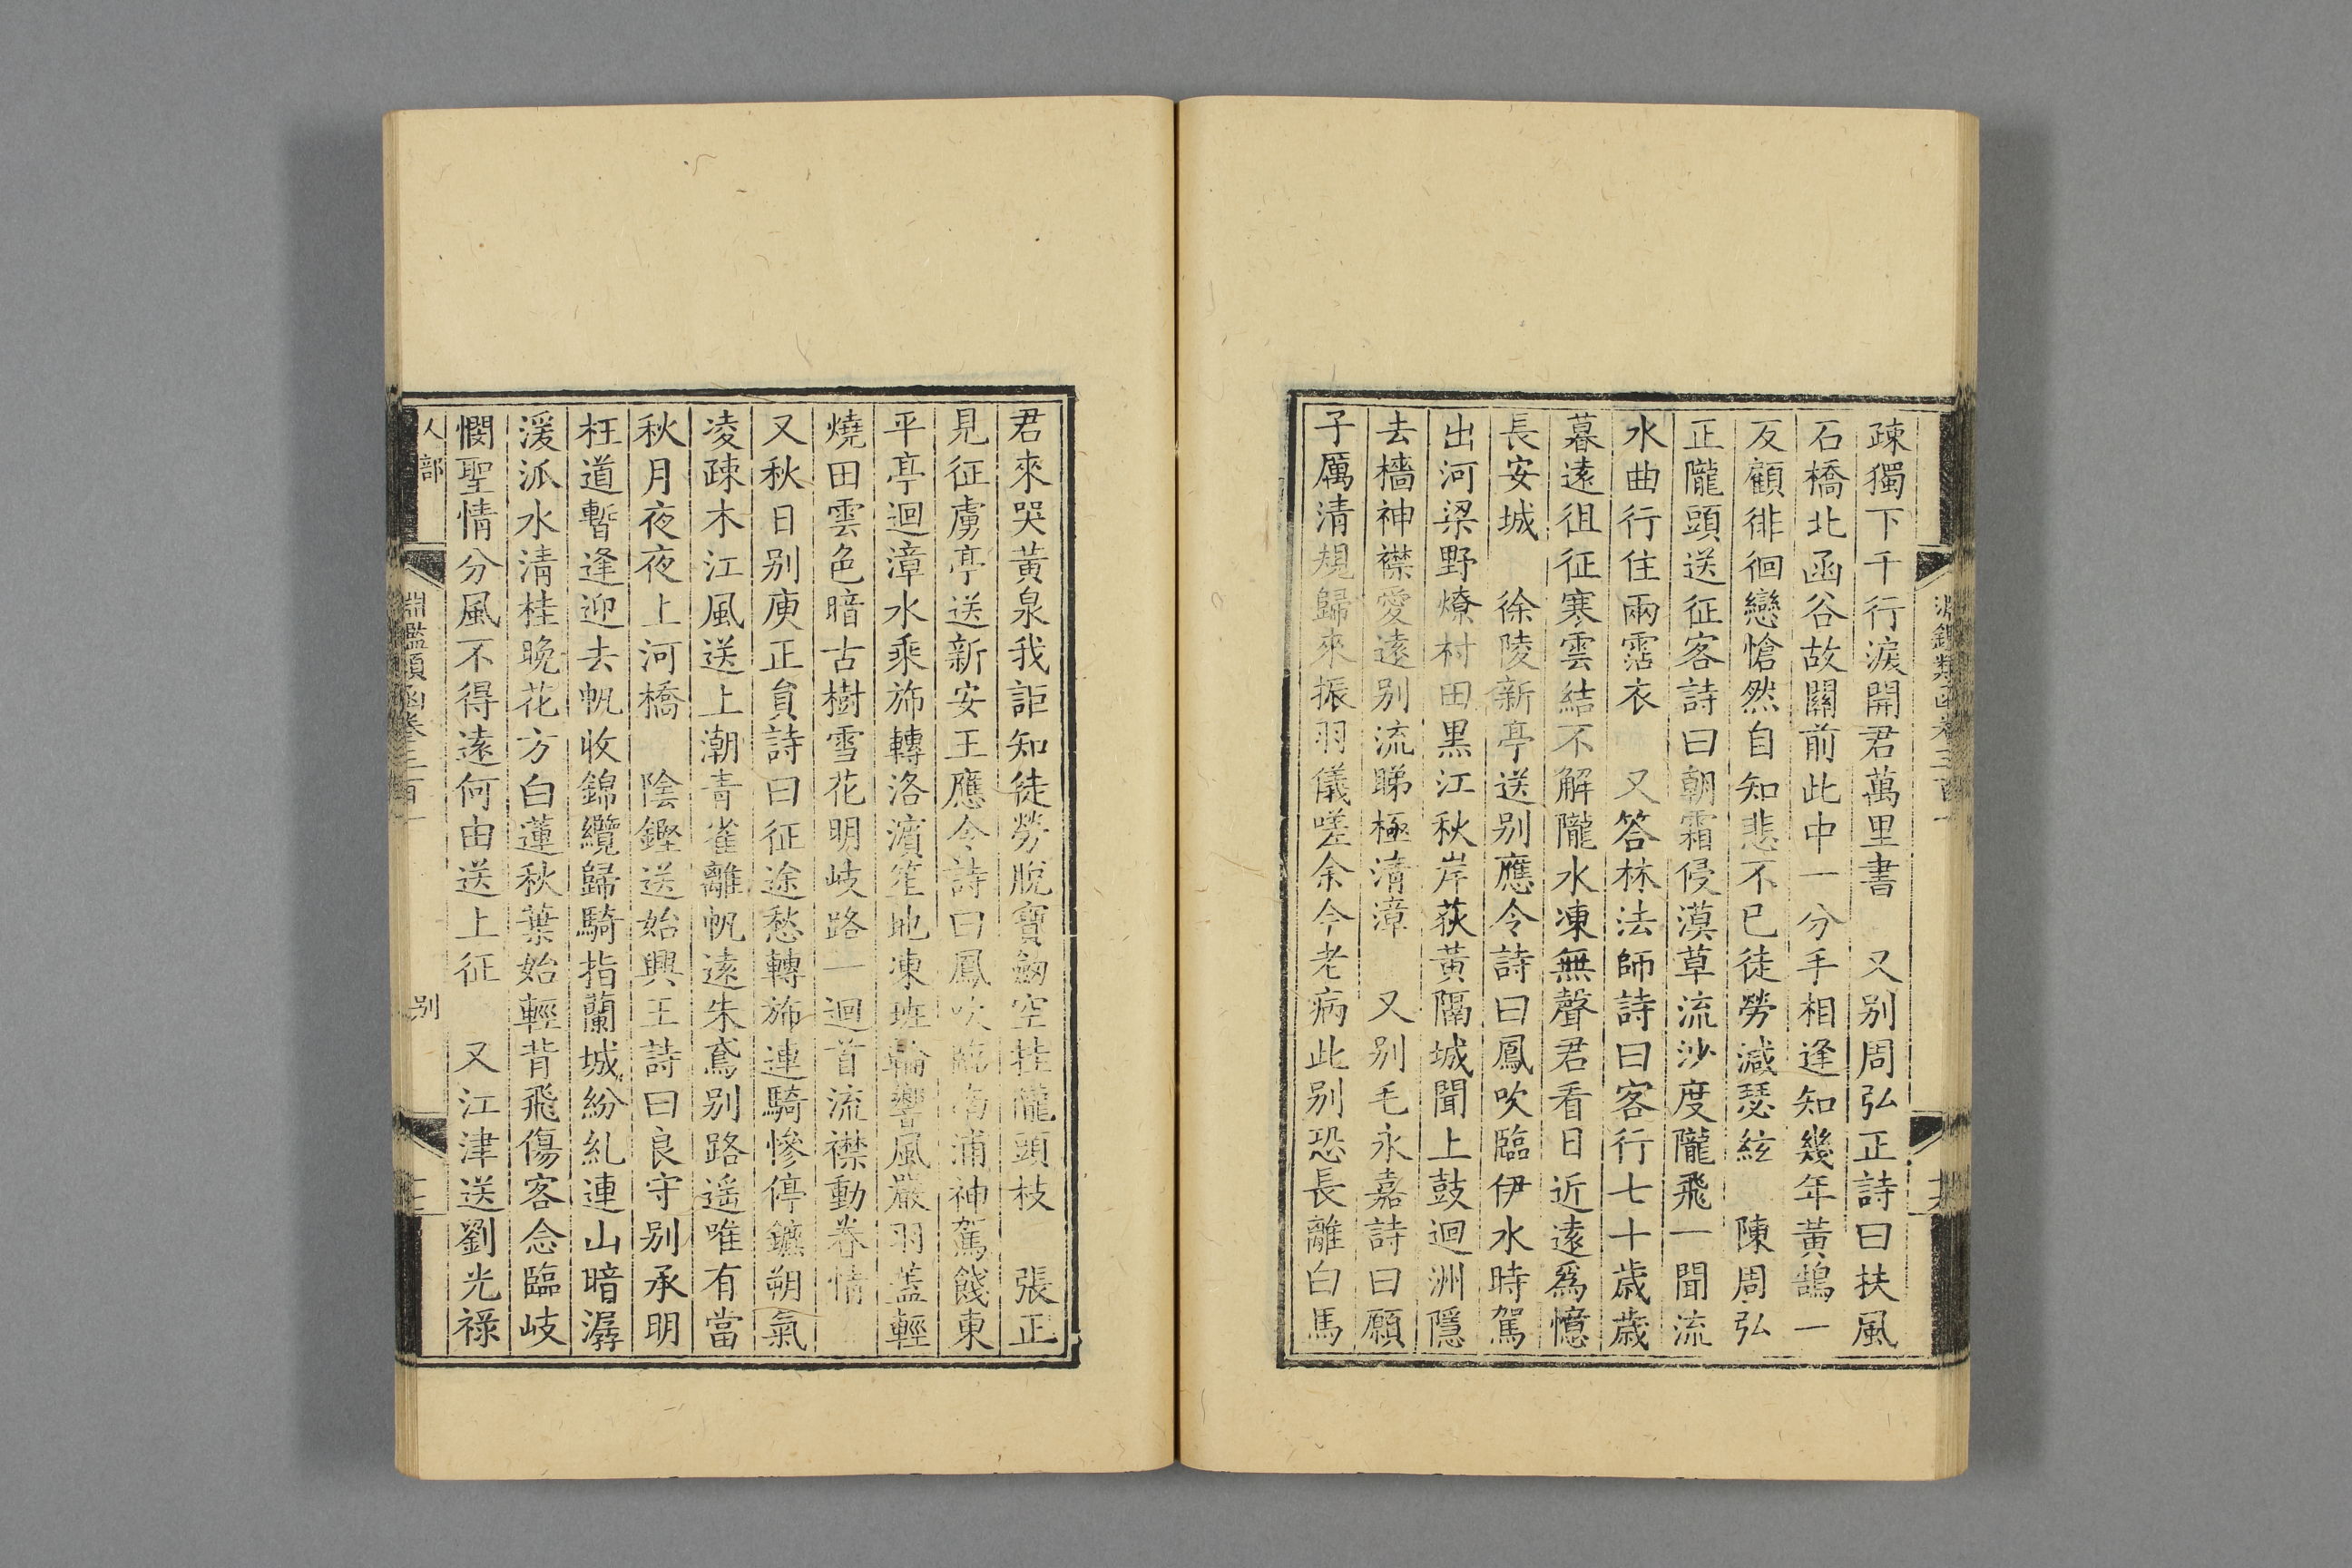 疎獨下千行淚開君萬里書 又别周弘正詩曰扶風
石橋北函谷故關前此中一分手相逢知幾年黃鵠一
反顧徘徊戀愴然自知悲不已徒勞減瑟絃 陳周弘
正隴頭送征客詩曰朝霜侵漠草流沙度隴飛一聞流
水曲行住兩霑衣 又答林法師詩曰客行七十歲歲
暮遠徂征寒雲結不解隴水凍無聲君看日近遠爲憶
長安城 徐陵新亭送别應令詩曰鳳吹臨伊水時駕
出河梁野燎村田黒江秋岸荻黃隔城聞上鼓迴洲隱
去檣神襟愛遠别流睇極清漳 又别毛永嘉詩曰願
子厲清規歸來振羽儀嗟余今老病此别恐長離白馬
君來哭黃泉我詎知徒勞脫寶劒空挂隴頭枝 張正
見征虜亭送新安王應令詩曰鳳吹臨南浦神駕餞東
平亭迴漳水乘斾轉洛濱笙地凍班輪響風嚴羽蓋輕
燒田雲色暗古樹雪花明岐路一迴首流襟動春情
又秋日别庾正員詩曰征途愁轉斾連騎慘停鑣朔氣
凌疎木江風送上潮青雀離帆遠朱鳶别路遥唯有當
秋月夜夜上河橋 陰鏗送始興王詩曰良守别承明
枉道暫逢迎去帆收錦纜歸騎指蘭城紛糺連山暗潺
湲派水清桂晚花方白蓮秋葉始輕背飛傷客念臨岐
憫聖情分風不得遠何由送上征 又江津送劉光祿
人部
淵鑑類函卷三百一
别